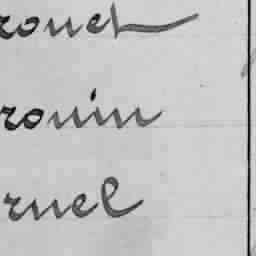 rouet
rouin
ruel